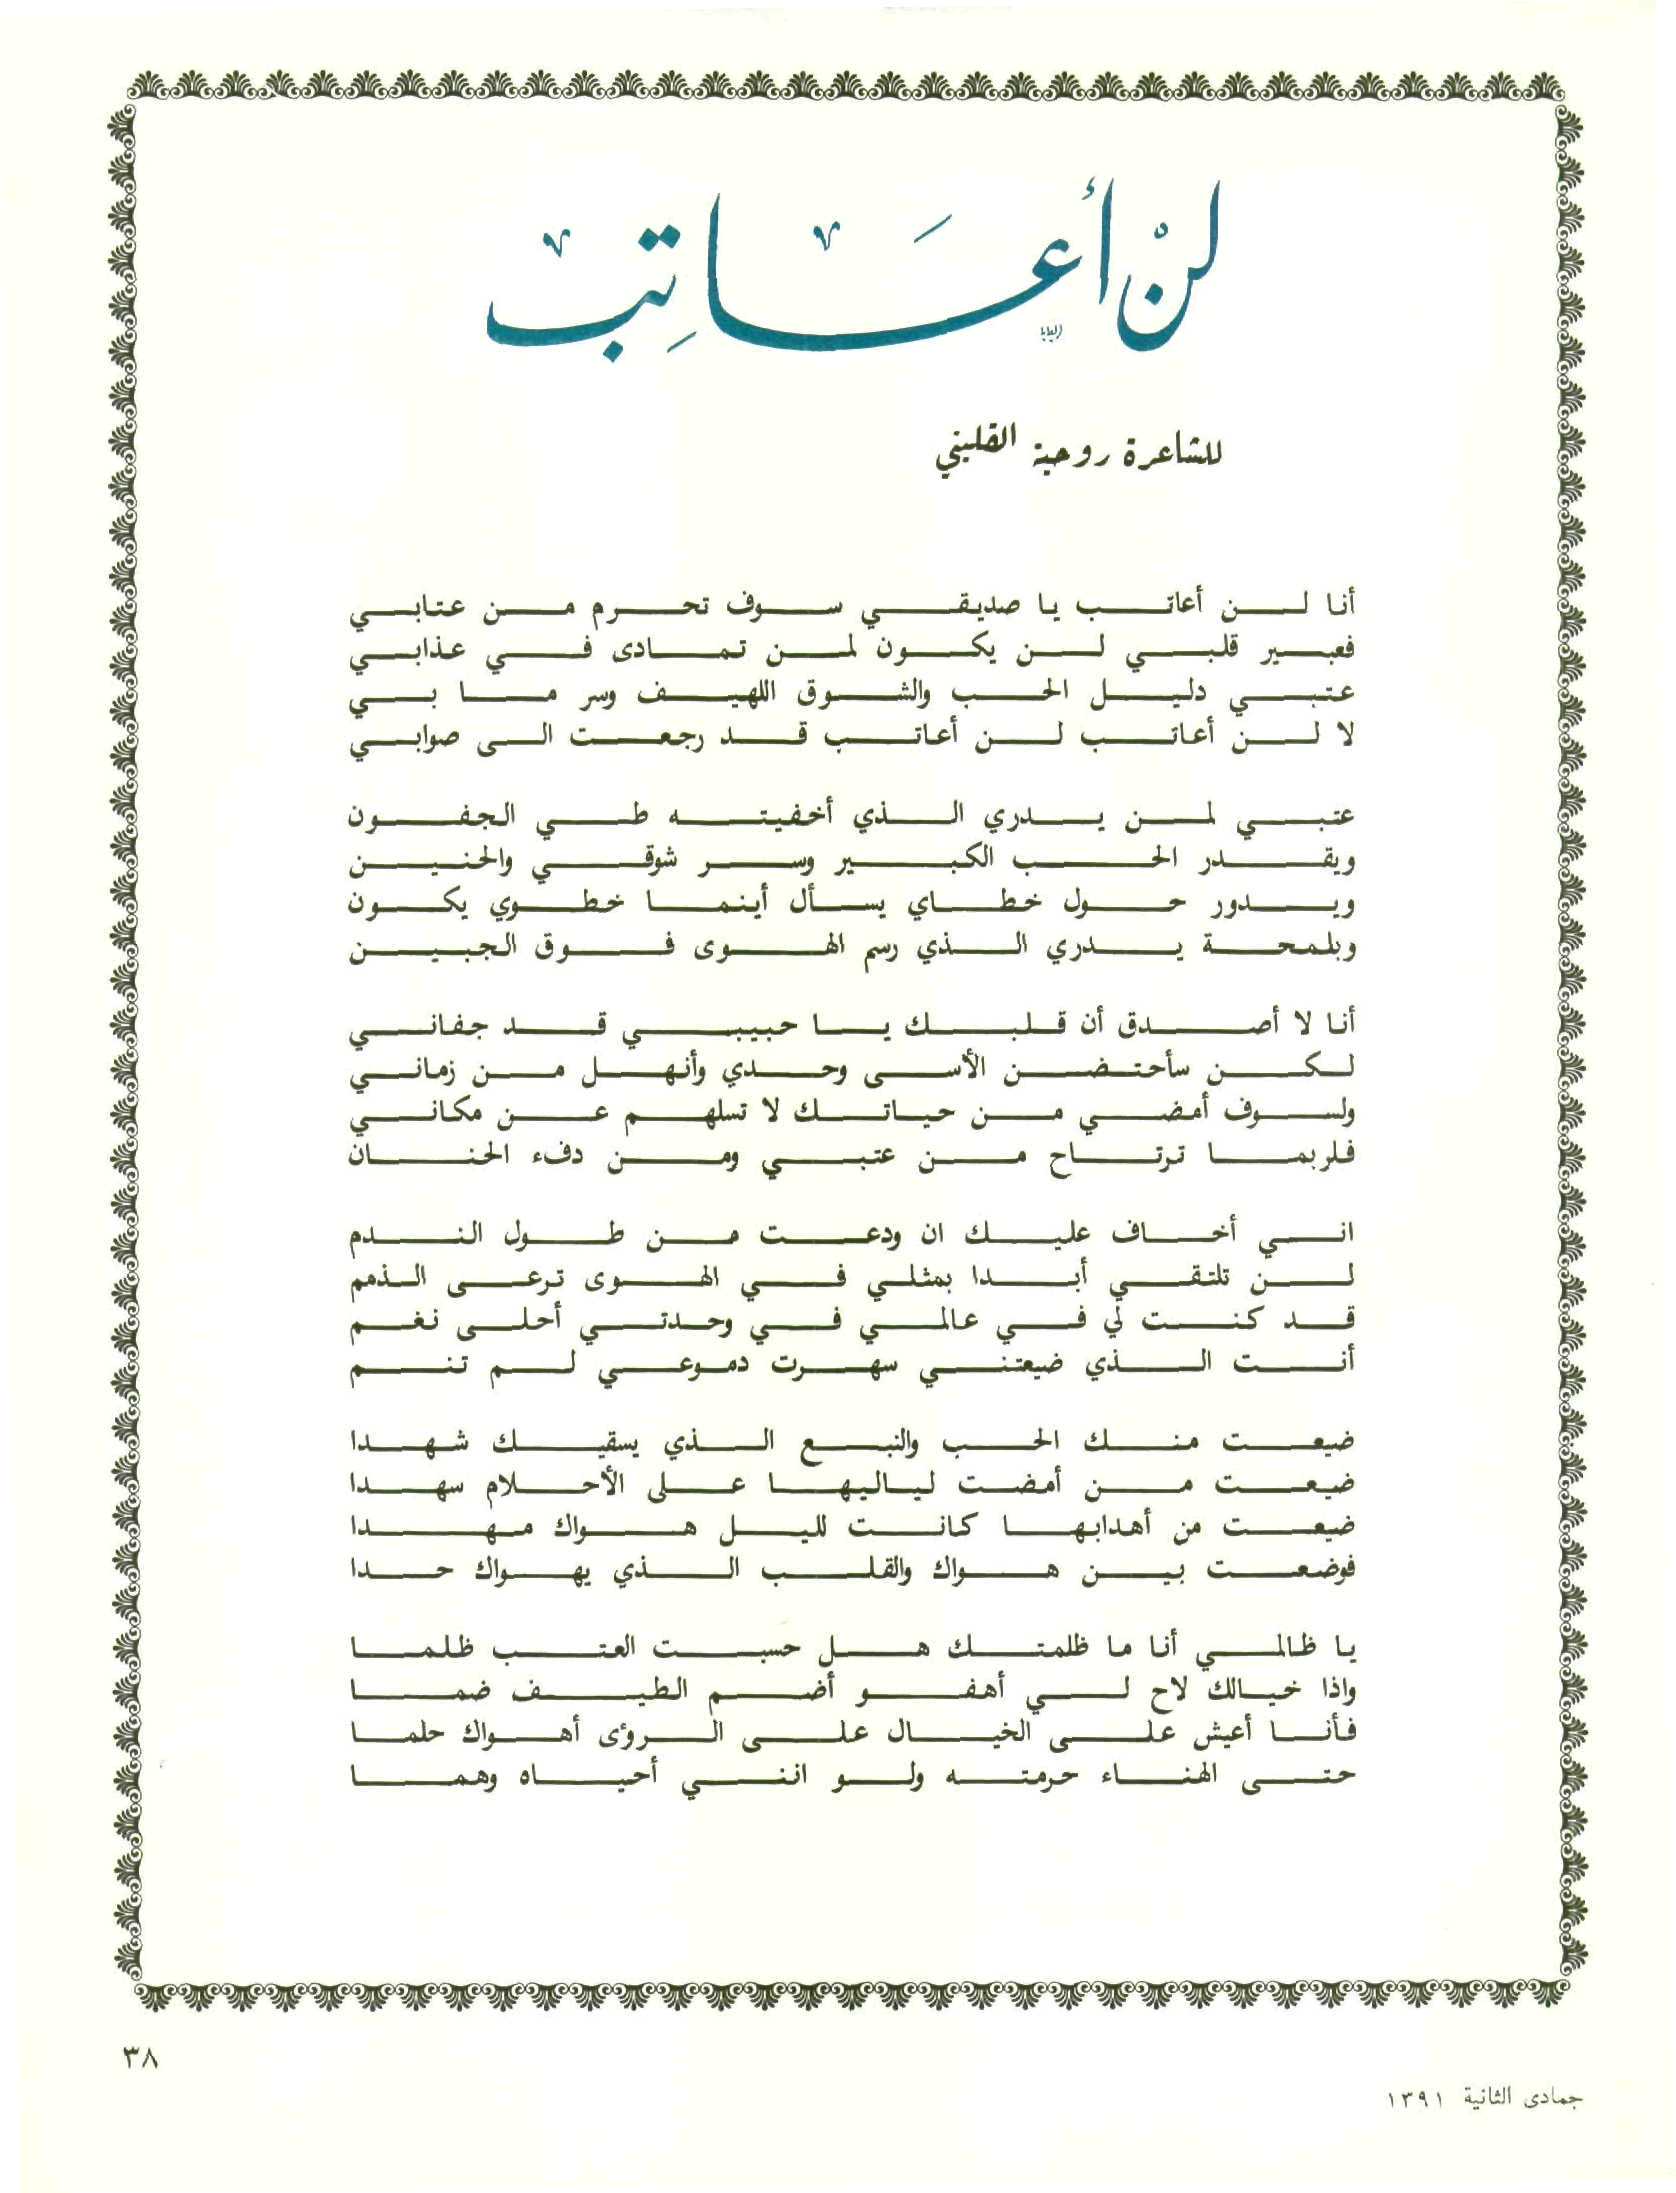 لن أعاتب
للشاعرة روحية القليني
أنا لن أعاتب يا صديقي سوف تحرم من عتابي
فعبير قلبي لن يكون لمن تمادى في عذابي
عتبي دليل الحب والشوق اللهيف وسر ما بي
لا لن أعاتب لن أعاتب قد رجعت الى صوابي
عتبي لمن يدري الذي أخفيته طي الجفون
ويقدر الحب الكبير وسر شوقي والحنين
ويدور حول خطاي يسأل أينما خطوي يكون
وبلمحة يدري الذي رسم الهوى فوق الجبين
أنا لا أصدق أن قلبك يا حبيبي قد جفاني
لكن سأحتضن الأسى وحدي وأنهل من زماني
ولسوف أمضي من حياتك لا تسلهم عن مكاني
فلربما ترتاح من عتبي ومن دفء الحنان
اني أخاف عليك ان ودعت من طول الندم
لن تلتقي أبدا بمثلي في الهوى ترعى الذمم
قد كنت لي في عالمي في وحدتي أحلى نغم
أنت الذي ضيعتني سهرت دموعي لم تنم
ضيعت منك الحب والنبع الذي يسقيك شهدا
ضيعت من أمضت لياليها على الأحلام سهدا
ضيعت من أهدابها كانت لليل هواك مهدا
فوضعت بين هواك والقلب الذي يهواك حدا
يا ظالمي أنا ما ظلمتك هل حسبت العتب ظلما
واذا خيالك لاح لي أهفو أضم الطيف ضما
فأنا أعيش على الخيال على الرؤى أهواك حلما
حتى الهناء حرمته ولو انني أحياه وهما
٣٨
جمادى الثانية ١٣٩١